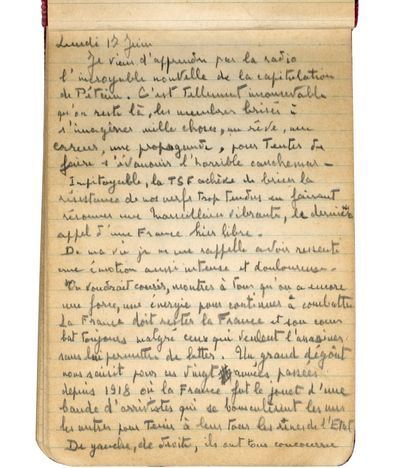 Lundi 17 Juin
Je viens d'apprendre par la radio
l'incroyable nouvelle de la capitulation
de Pétain. C'est tellement inconcevable
qu'on reste là, les membres brisés à
s'imaginer mille choses, un rêve, une
erreur, une propagande, pour tenter de
faire s'évanouir l'horrible cauchemar -
Impitoyable, la TSF achève de briser la
résistance de nos nerfs trop tendus en faisant
résonner une Marseillaise vibrante, le dernier
appel d'une France hier libre.
De ma vie je ne me rappelle avoir ressenti
une émotion aussi intense et douloureuse -
On voudrait courir, montrer à tous qu'on a encore
une force, une énergie pour continuer à combattre
La France doit rester la France et son cœur
bat toujours malgré ceux qui veulent l'assassiner
sans lui permettre de lutter. Un grand dégoût
nous saisit pour ces vingt années passées
depuis 1918 où la France fut le jouet d'une
bande d'arrivistes qui se bousculèrent les uns
les autres pour tenir à leur tour les rênes de l'Etat
De gauche, de droite, ils ont tous concouru